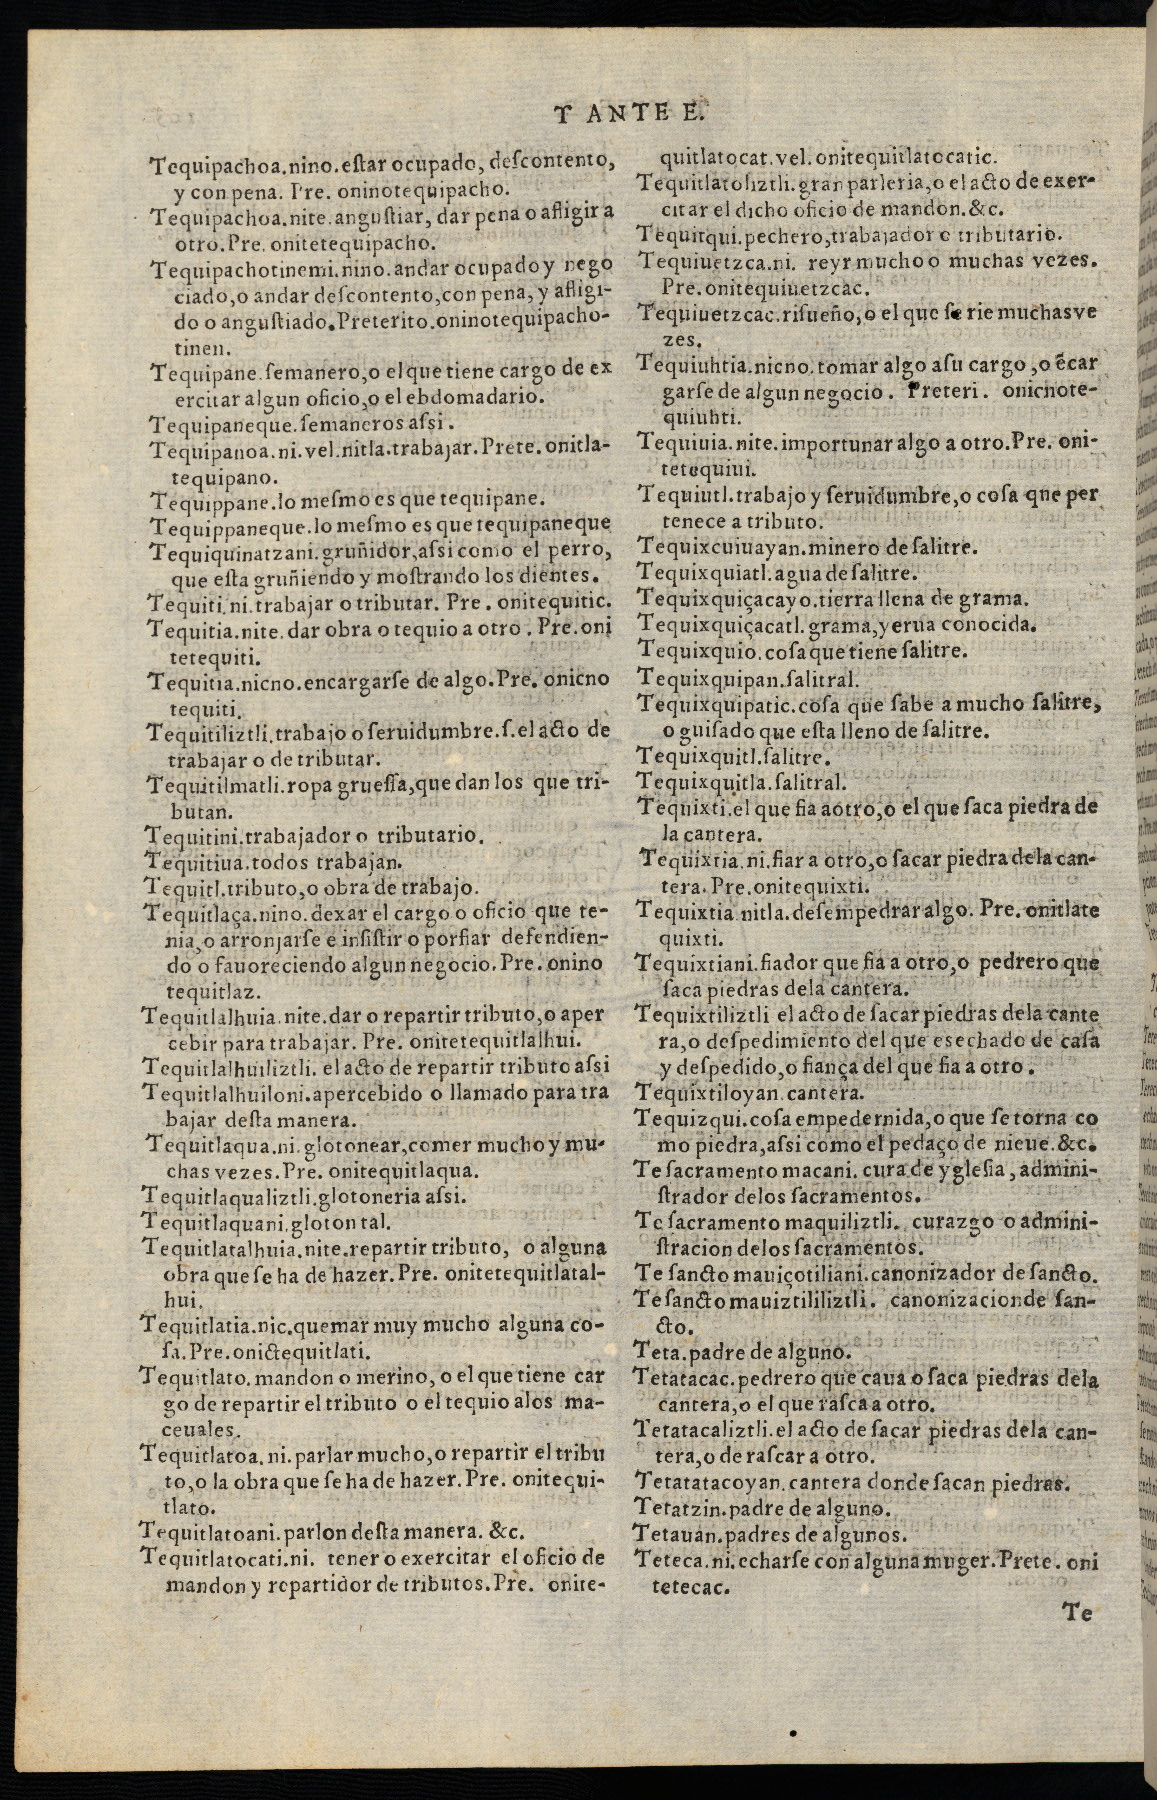 T ANTE E.
Tequipachoa.nino.eſtar ocupado, deſcontento,
y con pena. Pre. oninotequipacho.
Tequipachoa.nite.anguſtiar, dar pena o afligir a
otro.Pre. onitetequipacho.
Tequipachotinemi.nino.andar ocupado y nego
ciado,o andar deſcontento,con pena, y afligi-
do o anguſtiado.Preterito.oninotequipacho-
tinen.
Tequipane.ſemanero,o el que tiene cargo de ex
ercitar algun oficio,o el ebdomadario.
Tequipaneque.ſemaneros aſsi.
Tequipanoa.ni.vel.nitla.trabajar.Prete.onitla-
tequipano.
Tequippane.lo meſmo es que tequipane.
Tequippaneque.lo meſmo es que tequipaneque
Tequiquinatzani.gruñidor,aſsi como el perro,
que eſta gruñiendo y moſtrando los dientes.
Tequiti.ni.trabajar o tributar. Pre. onitequitic.
Tequitia.nite.dar obra o tequio a otro. Pre.oni
tetequiti.
Tequitia.nicno.encargarſe de algo.Pre. onicno
tequiti.
Tequitiliztli.trabajo o ſeruidumbre.ſ.el acto de
trabajar o de tributar.
Tequitilmatli.ropa grueſſa,que dan los que tri-
butan.
Tequitini.trabajador o tributario.
Tequitiua.todos trabajan.
Tequitl.tributo,o obra de trabajo.
Tequitlaça.nino.dexar el cargo o oficio que te-
nia,o arronjarſe e inſiſtir o porfiar defendien-
do o fauoreciendo algun negocio.Pre.onino
tequitlaz.
Tequitlalhuia.nite.dar o repartir tributo,o aper
cebir para trabajar. Pre. onitetequitlalhui.
Tequitlalhuiliztli. el acto de repartir tributo aſsi
Tequitlalhuiloni.apercebido o llamado para tra
bajar deſta manera.
Tequitlaqua.ni.glotonear,comer mucho y mu-
chas vezes.Pre. onitequitlaqua.
Tequitlaqualiztli.glotoneria aſsi.
Tequitlaquani.gloton tal.
Tequitlatalhuia.nite.repartir tributo, o alguna
obra que ſe ha de hazer.Pre. onitetequitlatal-
hui.
Tequitlatia.nic.quemar muy mucho alguna co-
ſa.Pre.onictequitlati.
Tequitlato.mandon o merino, o el que tiene car
go de repartir el tributo o el tequio alos ma-
ceuales.
Tequitlatoa.ni.parlar mucho,o repartir el tribu
to,o la obra que ſe ha de hazer.Pre. onitequi-
tlato.
Tequitlatoani.parlon deſta manera. &c.
Tequitlatocati.ni. tener o exercitar el oficio de
mandon y repartidor de tributos.Pre. onite-
quitlatocat.vel.onitequitlatocatic.
Tequitlatoliztli.gran parleria,o el acto de exer-
citar el dicho oficio de mandon.&c.
Tequitqui.pechero,trabajador o tributario.
Tequiuetzca.ni. reyr mucho o muchas vezes.
Pre.onitequiuetzcac.
Tequiuetzcac.riſueño,o el que ſe rie muchas ve
zes.
Tequiuhtia.nicno.tomar algo aſu cargo,o ẽcar
garſe de algun negocio. Preteri. onicnote-
quiuhti.
Tequiuia.nite.importunar algo a otro.Pre. oni-
tetequiui.
Tequiutl.trabajo y ſeruidumbre,o coſa que per
tenece a tributo.
Tequixcuiuayan.minero de ſalitre.
Tequixquiatl.agua de ſalitre.
Tequixquiçacayo.tierra llena de grama.
Tequixquiçacatl.grama,yerua conocida.
Tequixquio.coſa que tiene ſalitre.
Tequixquipan.ſalitral.
Tequixquipatic.coſa que ſabe a mucho ſalitre,
o guiſado que eſta lleno de ſalitre.
Tequixquitl.ſalitre.
Tequixquitla.ſalitral.
Tequixti.el que fia aotro,o el que ſaca piedra de
la cantera.
Tequixtia.ni.fiar a otro,o ſacar piedra dela can-
tera.Pre.onitequixti.
Tequixtia.nitla.deſempedrar algo. Pre.onitlate
quixti.
Tequixtiani.fiador que fia a otro,o pedrero que
ſaca piedras dela cantera.
Tequixtiliztli el acto de ſacar piedras dela cante
ra,o deſpedimiento del que es echado de caſa
y deſpedido,o fiança del que fia a otro.
Tequixtiloyan.cantera.
Tequizqui.coſa empedernida,o que ſe torna co
mo piedra,aſsi como el pedaço de nieue.&c.
Te ſacramento macani. cura de ygleſia, admini-
ſtrador delos ſacramentos.
Te ſacramento maquiliztli. curazgo o admini-
ſtracion delos ſacramentos.
Te ſancto mauiçotiliani.canonizador de ſancto.
Te ſancto mauiztililiztli. canonizacion de ſan-
cto.
Teta.padre de alguno.
Tetatacac.pedrero que caua o ſaca piedras dela
cantera,o el que raſca a otro.
Tetatacaliztli.el acto de ſacar piedras dela can-
tera,o de raſcar a otro.
Tetatatacoyan.cantera donde ſacan piedras.
Tetatzin.padre de alguno.
Tetauan.padres de algunos.
Teteca.ni.echarſe con alguna muger.Prete.oni
tetecac.
Te